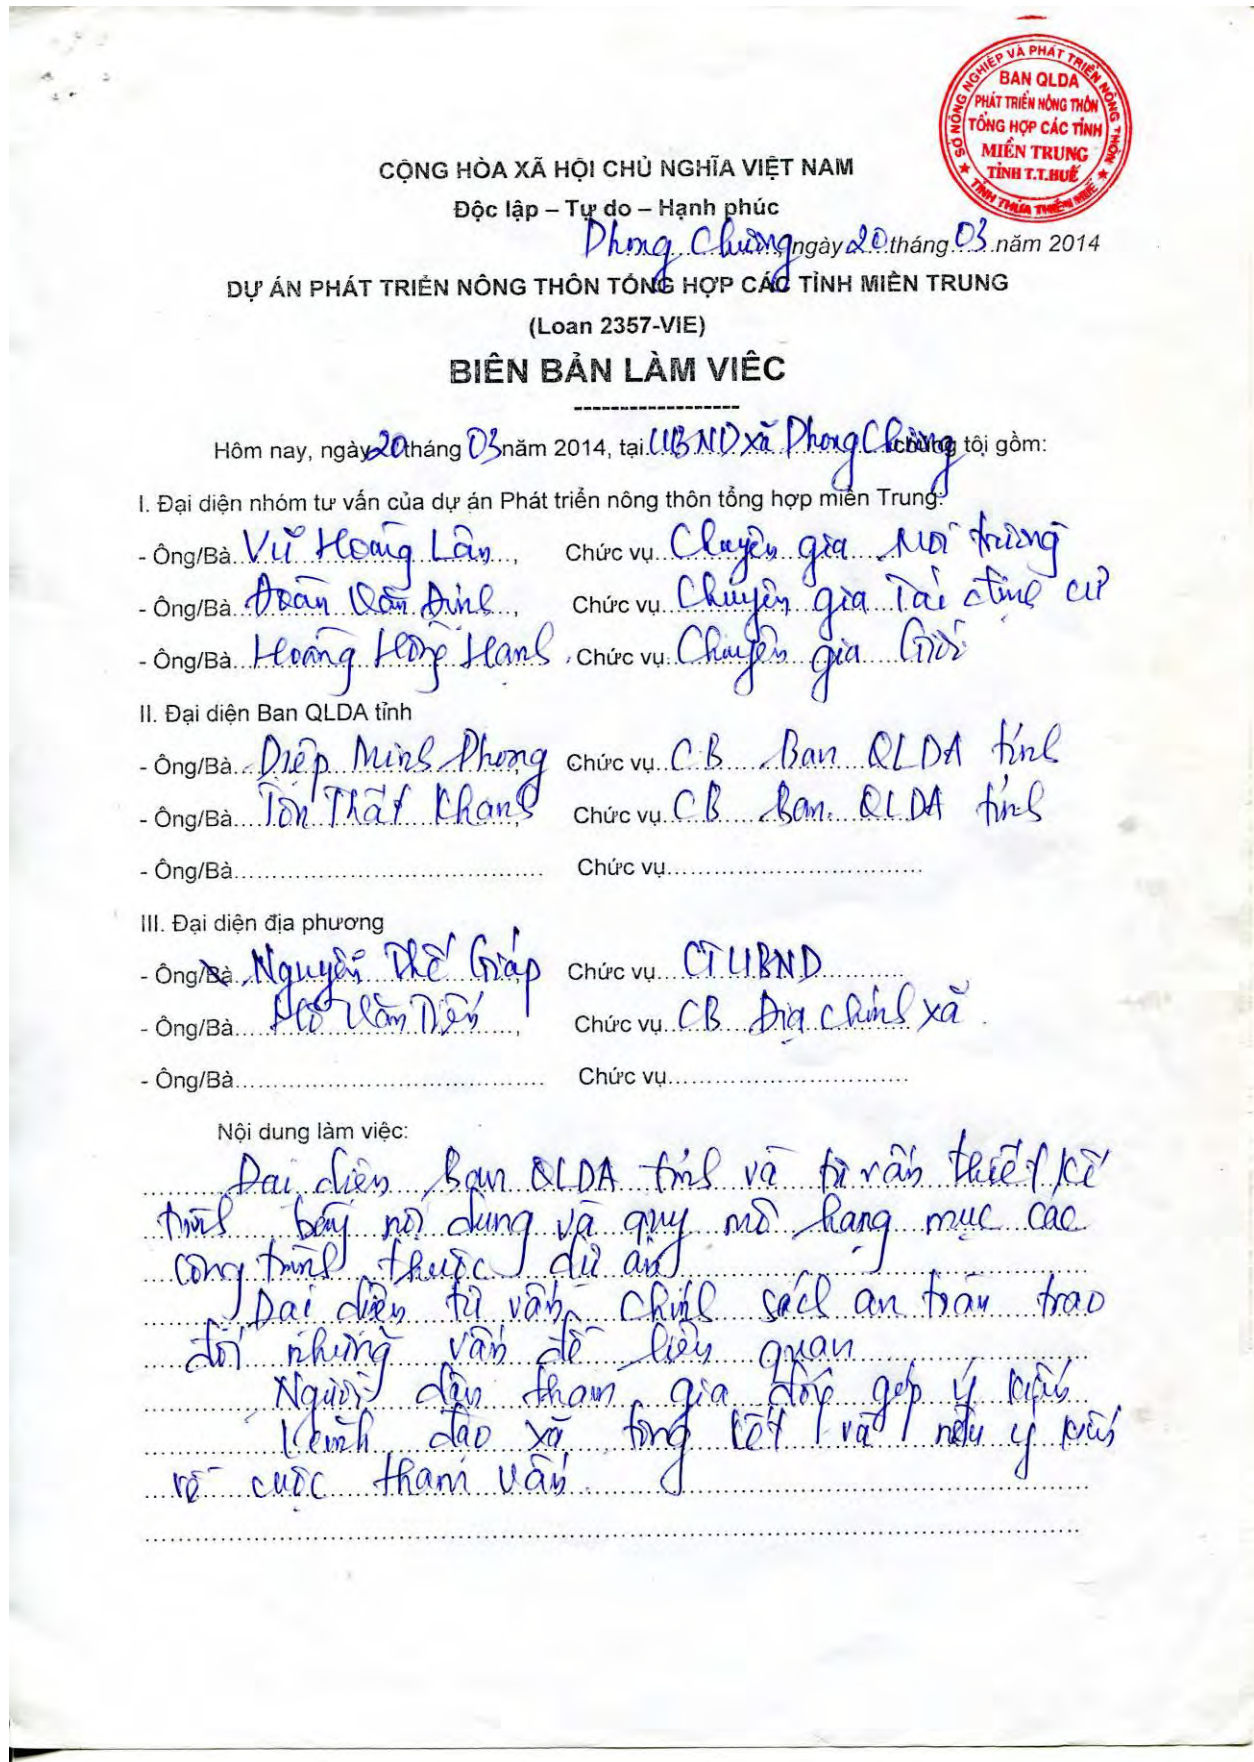 SỞ NÔNG NGHIỆP VÀ PHÁT TRIỂN NÔNG THÔN
BAN QLDA
PHÁT TRIỂN NÔNG THÔN
TỔNG HỢP CÁC TỈNH
MIỀN TRUNG
TỈNH T.T.HUẾ
★ TỈNH THỪA THIÊN HUẾ ★
CỘNG HÒA XÃ HỘI CHỦ NGHĨA VIỆT NAM
Độc lập – Tự do – Hạnh phúc
Phong Chương, ngày 20 tháng 03 năm 2014
DỰ ÁN PHÁT TRIỂN NÔNG THÔN TỔNG HỢP CÁC TỈNH MIỀN TRUNG
(Loan 2357-VIE)
BIÊN BẢN LÀM VIỆC
------------------
Hôm nay, ngày 20 tháng 03 năm 2014, tại UBND xã Phong Chương chúng tôi gồm:
I. Đại diện nhóm tư vấn của dự án Phát triển nông thôn tổng hợp miền Trung:
- Ông/Bà Vũ Hoàng Lân, Chức vụ Chuyên gia Môi trường
- Ông/Bà Đoàn Văn Định, Chức vụ Chuyên gia Tái định cư
- Ông/Bà Hoàng Hồng Hạnh, Chức vụ: Chuyên gia Giới
II. Đại diện Ban QLDA tỉnh
- Ông/Bà Diệp Minh Phong Chức vụ CB Ban QLDA tỉnh
- Ông/Bà Tôn Thất Khanh, Chức vụ CB Ban QLDA tỉnh
- Ông/Bà........................................ Chức vụ.................................
III. Đại diện địa phương
- Ông/Bà Nguyễn Thế Giáp Chức vụ CTUBND
- Ông/Bà Hồ Văn, Chức vụ CB Địa chính xã
- Ông/Bà........................................ Chức vụ...............................
Nội dung làm việc:
Đại diện Ban QLDA tỉnh và tư vấn thiết kế
trình bày nội dung và quy mô hạng mục các
công trình thuộc dự án
Đại diện tư vấn chính sách an toàn trao
đổi những vấn đề liên quan
Người dân tham gia đóng góp ý kiến
Lãnh đạo xã tổng kết và nêu ý kiến
về cuộc tham vấn